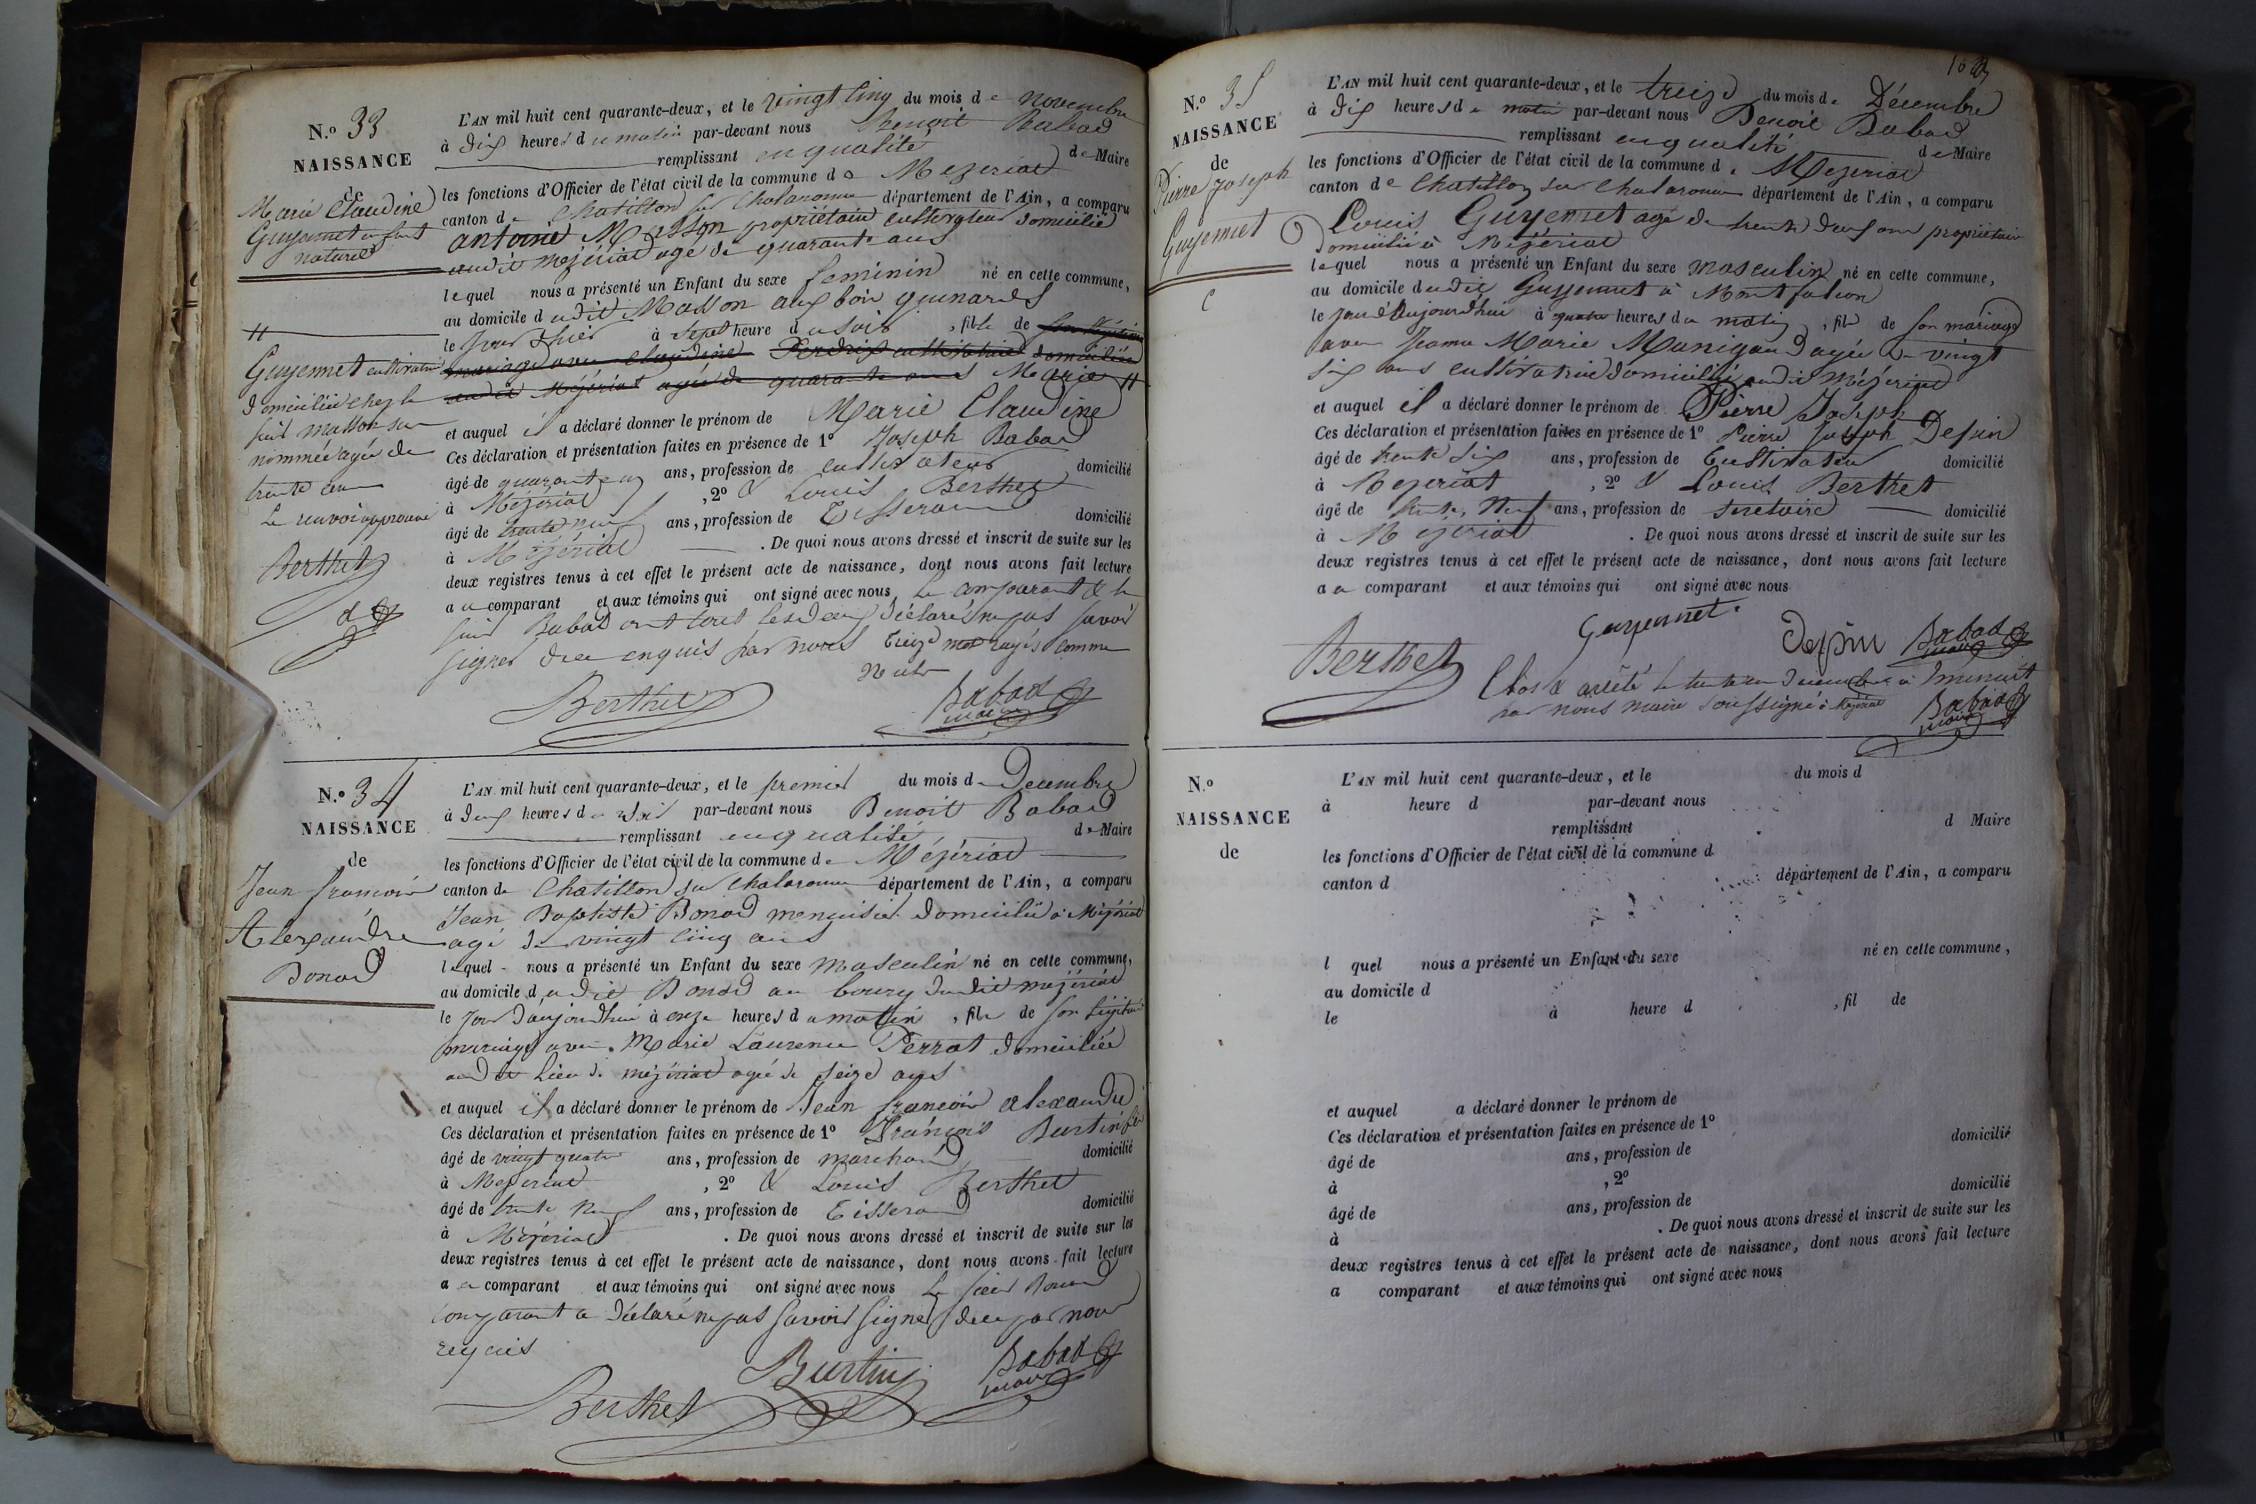 N.º 33
NAISSANCE
de
Marie Claudine
Guyennet enfant
naturel
L'AN mil huit cent quarante-deux, et le vingt cinq du mois de novembre
à dix heures du matin par-devant nous Benoit Babad
remplissant en qualité de Maire
les fonctions d'Officier de l'état civil de la commune de Mezeriat
canton de Chatillon sur Chalaronne département de l'Ain, a comparu
antoine Masson propriétaire cultivateur domicilié
audit Mézériat agé de quarante ans
lequel nous a présenté un Enfant du sexe feminin né en cette commune,
au domicile dudit Masson aux bois guinards
le jour d'hier à sept heure du soir, fille de son légitime
mariage avec Claudine Perdrix cultivatrice domiciliée
audit Mézériat agée de quarante ans Marie #
#
Guyennet cultivatrice
domiciliée chez le
suit masson sur
nommé agée de
trente ans
Le renvoi approuvé
Berthet
et auquel il a déclaré donner le prénom de Marie Claudine
Ces déclaration et présentation faites en présence de 1º Joseph Babad
âgé de quarante ans, profession de cultivateur domicilié
à Mézériat, 2º & Louis Berthet
âgé de trente neuf ans, profession de Tisserand domicilié
à Mézériat. De quoi nous avons dressé et inscrit de suite sur les
deux registres tenus à cet effet le présent acte de naissance, dont nous avons fait lecture
au comparant et aux témoins qui ont signé avec nous Le comparant & le
suit Babad ont tout les deux déclaré ne pas savoir
signer de ce enquis par nous treize mots rayés comme
Nuls
Berthet
Babad
maire
N.º 34
NAISSANCE
de
Jean françois
Alexandre
Bonad
L'AN mil huit cent quarante-deux, et le premier du mois de Decembre
à deux heures du soir par-devant nous Benoit Babad
remplissant en qualité de Maire
les fonctions d'Officier de l'état civil de la commune de Mézériat
canton de Chatillon sur Chalaronne département de l'Ain, a comparu
Jean Baptiste Bonad menuisier domicilié à Mézériat
agé de vingt cinq ans
lequel nous a présenté un Enfant du sexe masculin né en cette commune,
au domicile dudit Bonad au bourg dudit mézériat
le jour d'aujourdhui à onze heures du matin, fils de son légitime
mariage avec Marie Laurence Perrat domiciliée
audit lieu de mézériat agée de seize ans
et auquel il a déclaré donner le prénom de Jean françois alexandre
Ces déclaration et présentation faites en présence de 1º François Burtin fils
âgé de vingt quatre ans, profession de marchand domicilié
à Mezeriat, 2º & Louis Berthet
âgé de trente neuf ans, profession de Tisserand domicilié
à Mézériat. De quoi nous avons dressé et inscrit de suite sur les
deux registres tenus à cet effet le présent acte de naissance, dont nous avons fait lecture
au comparant et aux témoins qui ont signé avec nous Le sieur Bonad
comparant a déclaré ne pas savoir signer de ce par nous
requis
Berthet
Burtin
Babad
maire
N.º 35
NAISSANCE
de
Pierre Joseph
Guyennet
L'AN mil huit cent quarante-deux, et le treize du mois de Décembre
à dix heures du matin par-devant nous Benoit Babad
remplissant en qualité de Maire
les fonctions d'Officier de l'état civil de la commune de Mezeriat
canton de Chatillon sur Chalaronne département de l'Ain, a comparu
Louis Guyennet agé de trente deux ans propriétaire
domicilié à Mézériat
lequel nous a présenté un Enfant du sexe masculin né en cette commune,
au domicile dudit Guyennet à Montfalcon
le jour d'Aujourd'hui à quatre heures du matin, fils de son mariage
avec Jeanne Marie Manigand agée de vingt
six ans cultivatrice domiciliée audit Mézériat
et auquel il a déclaré donner le prénom de Pierre Joseph
Ces déclaration et présentation faites en présence de 1º Pierre Joseph Depin
âgé de trente six ans, profession de Cultivateur domicilié
à Mezeriat, 2º & Louis Berthet
âgé de trente Neuf ans, profession de secretaire domicilié
à Mézériat. De quoi nous avons dressé et inscrit de suite sur les
deux registres tenus à cet effet le présent acte de naissance, dont nous avons fait lecture
au comparant et aux témoins qui ont signé avec nous
Guyennet
Berthet
Depin
Babad
maire
Clos & arrêté le trente un Decembre à minuit
par nous maire soussigné à Mézériat
Babad
maire
N.º
NAISSANCE
de
L'AN mil huit cent quarante-deux, et le du mois d
à heure d par-devant nous
remplissant d Maire
les fonctions d'Officier de l'état civil de la commune d
canton d département de l'Ain, a comparu
l quel nous a présenté un Enfant du sexe né en cette commune,
au domicile d
le à heure d, fil de
et auquel a déclaré donner le prénom de
Ces déclaration et présentation faites en présence de 1º
âgé de ans, profession de domicilié
à, 2º
âgé de ans, profession de domicilié
à. De quoi nous avons dressé et inscrit de suite sur les
deux registres tenus à cet effet le présent acte de naissance, dont nous avons fait lecture
a comparant et aux témoins qui ont signé avec nous